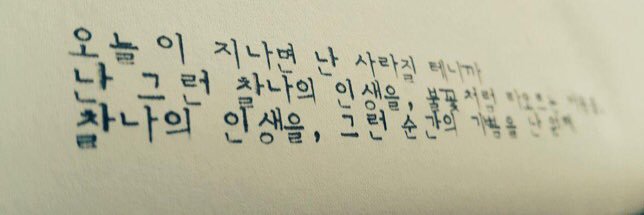 오늘이 지나면 난 사라질 테니까
난 그런 찰나의 인생을, 불꽃처럼 타오르는
찰나의 인생을, 그런 순간의 기쁨을 난